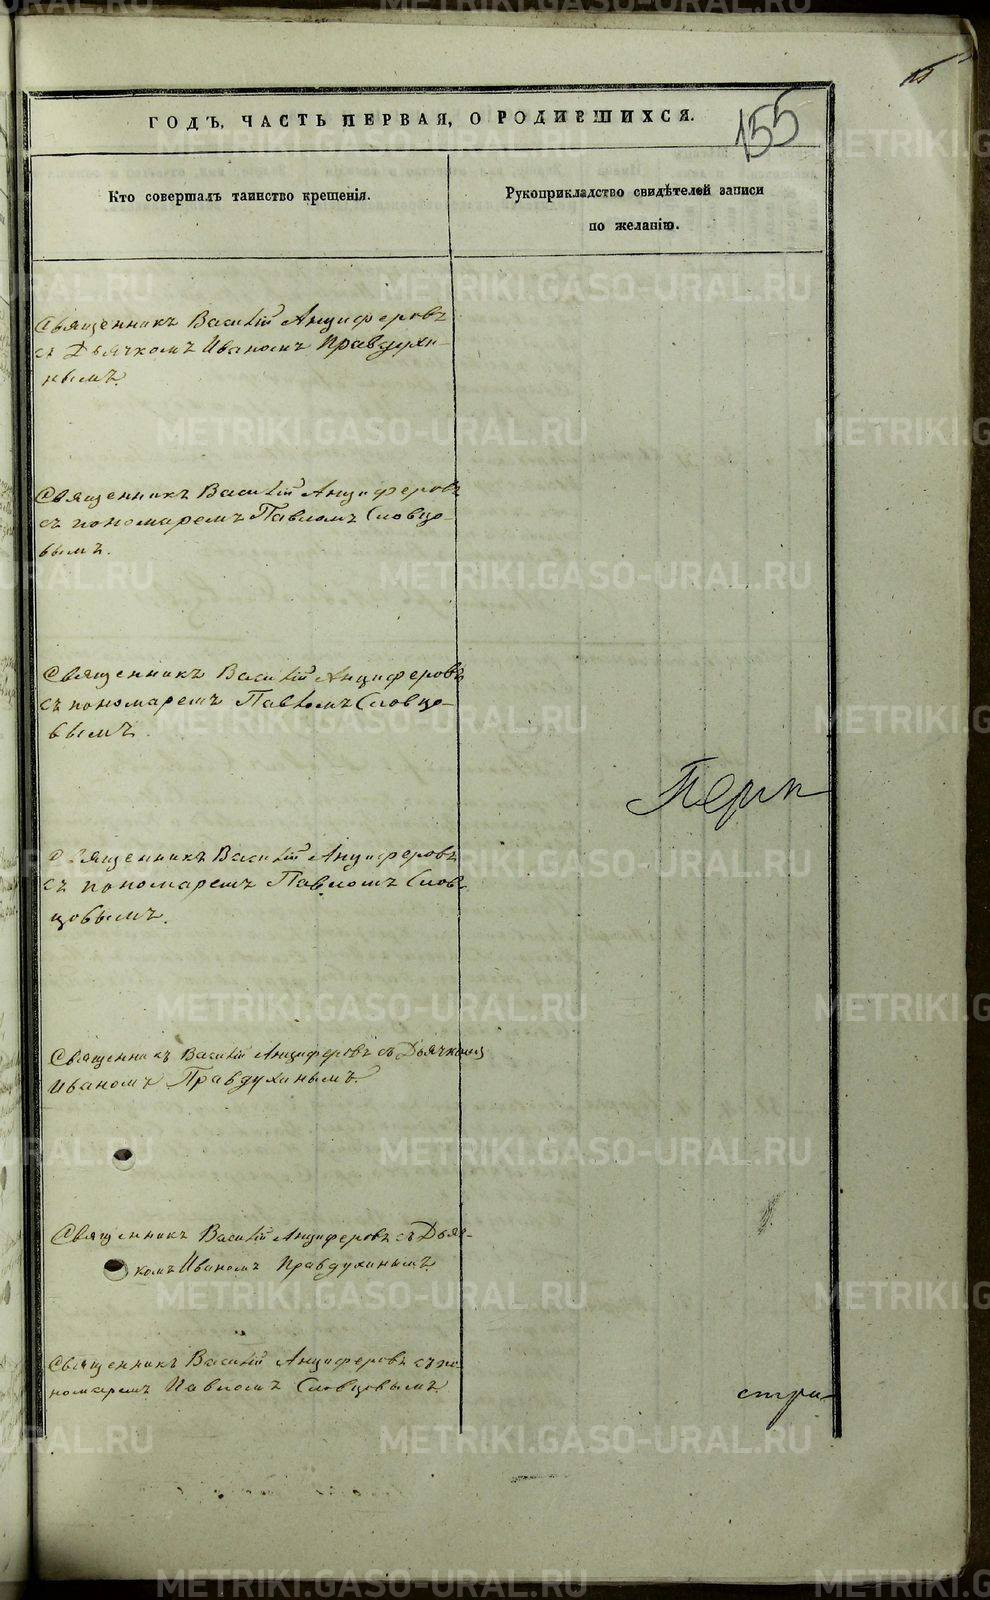 155
ГОДЪ, ЧАСТЬ ПЕРВАЯ, О РОДИВШИХСЯ.
Кто совершалъ таинство крещенія.
Рукоприкладство свидѣтелей записи
по желанію.
Священникъ Василій Анциферовъ
съ Дьячкомъ Иваномъ Правдухи-
нымъ.
Священникъ Василій Анциферовъ
съ пономаремъ Павломъ Словцо-
вымъ.
Священникъ Василій Анциферовъ
съ пономаремъ Павломъ Словцо-
вымъ.
Перм
Священникъ Василій Анциферовъ
съ пономаремъ Павломъ Слов-
цовымъ.
Священникъ Василій Анциферовъ съ Дьячкомъ
Иваномъ Правдухинымъ.
Священникъ Василій Анциферовъ съ Дьяч-
комъ Иваномъ Правдухинымъ.
Священникъ Василій Анциферовъ съ по-
номаремъ Павломъ Словцовымъ.
METRIKI.GASO-URAL.RU